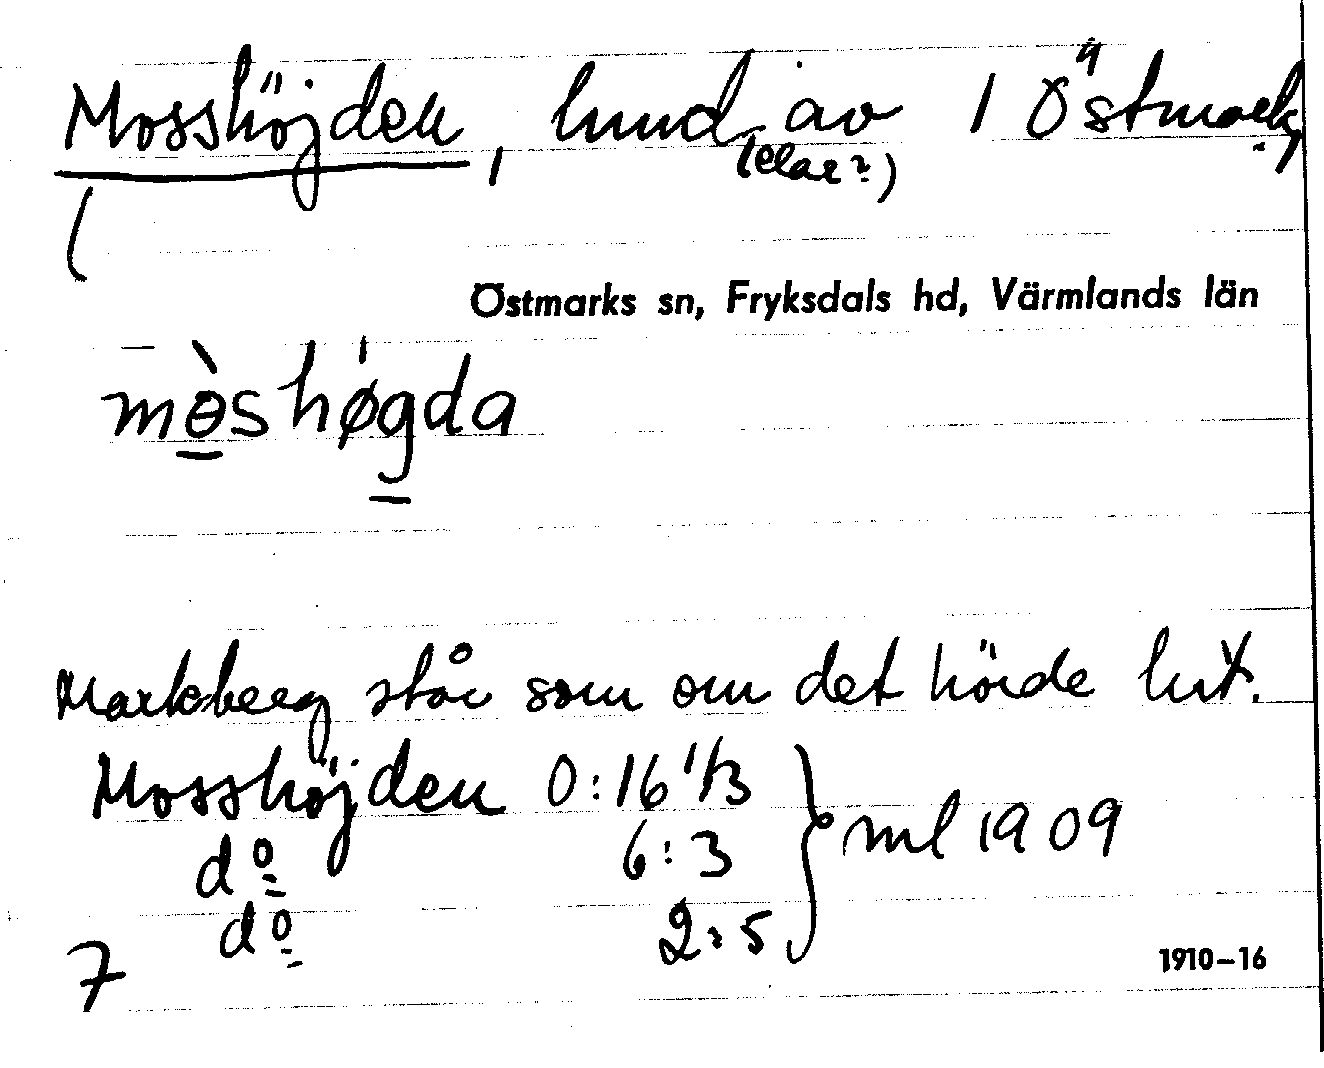 Mosshöjden, lund av 1 Östmark,
(elar?)
Östmarks sn, Fryksdals hd, Värmlands län
mòshøgda
Markberg står som om det hörde hit.
Mosshöjden 0:16 1/3
do 6:3 } ml 1909
do 2:5
7
1910-16